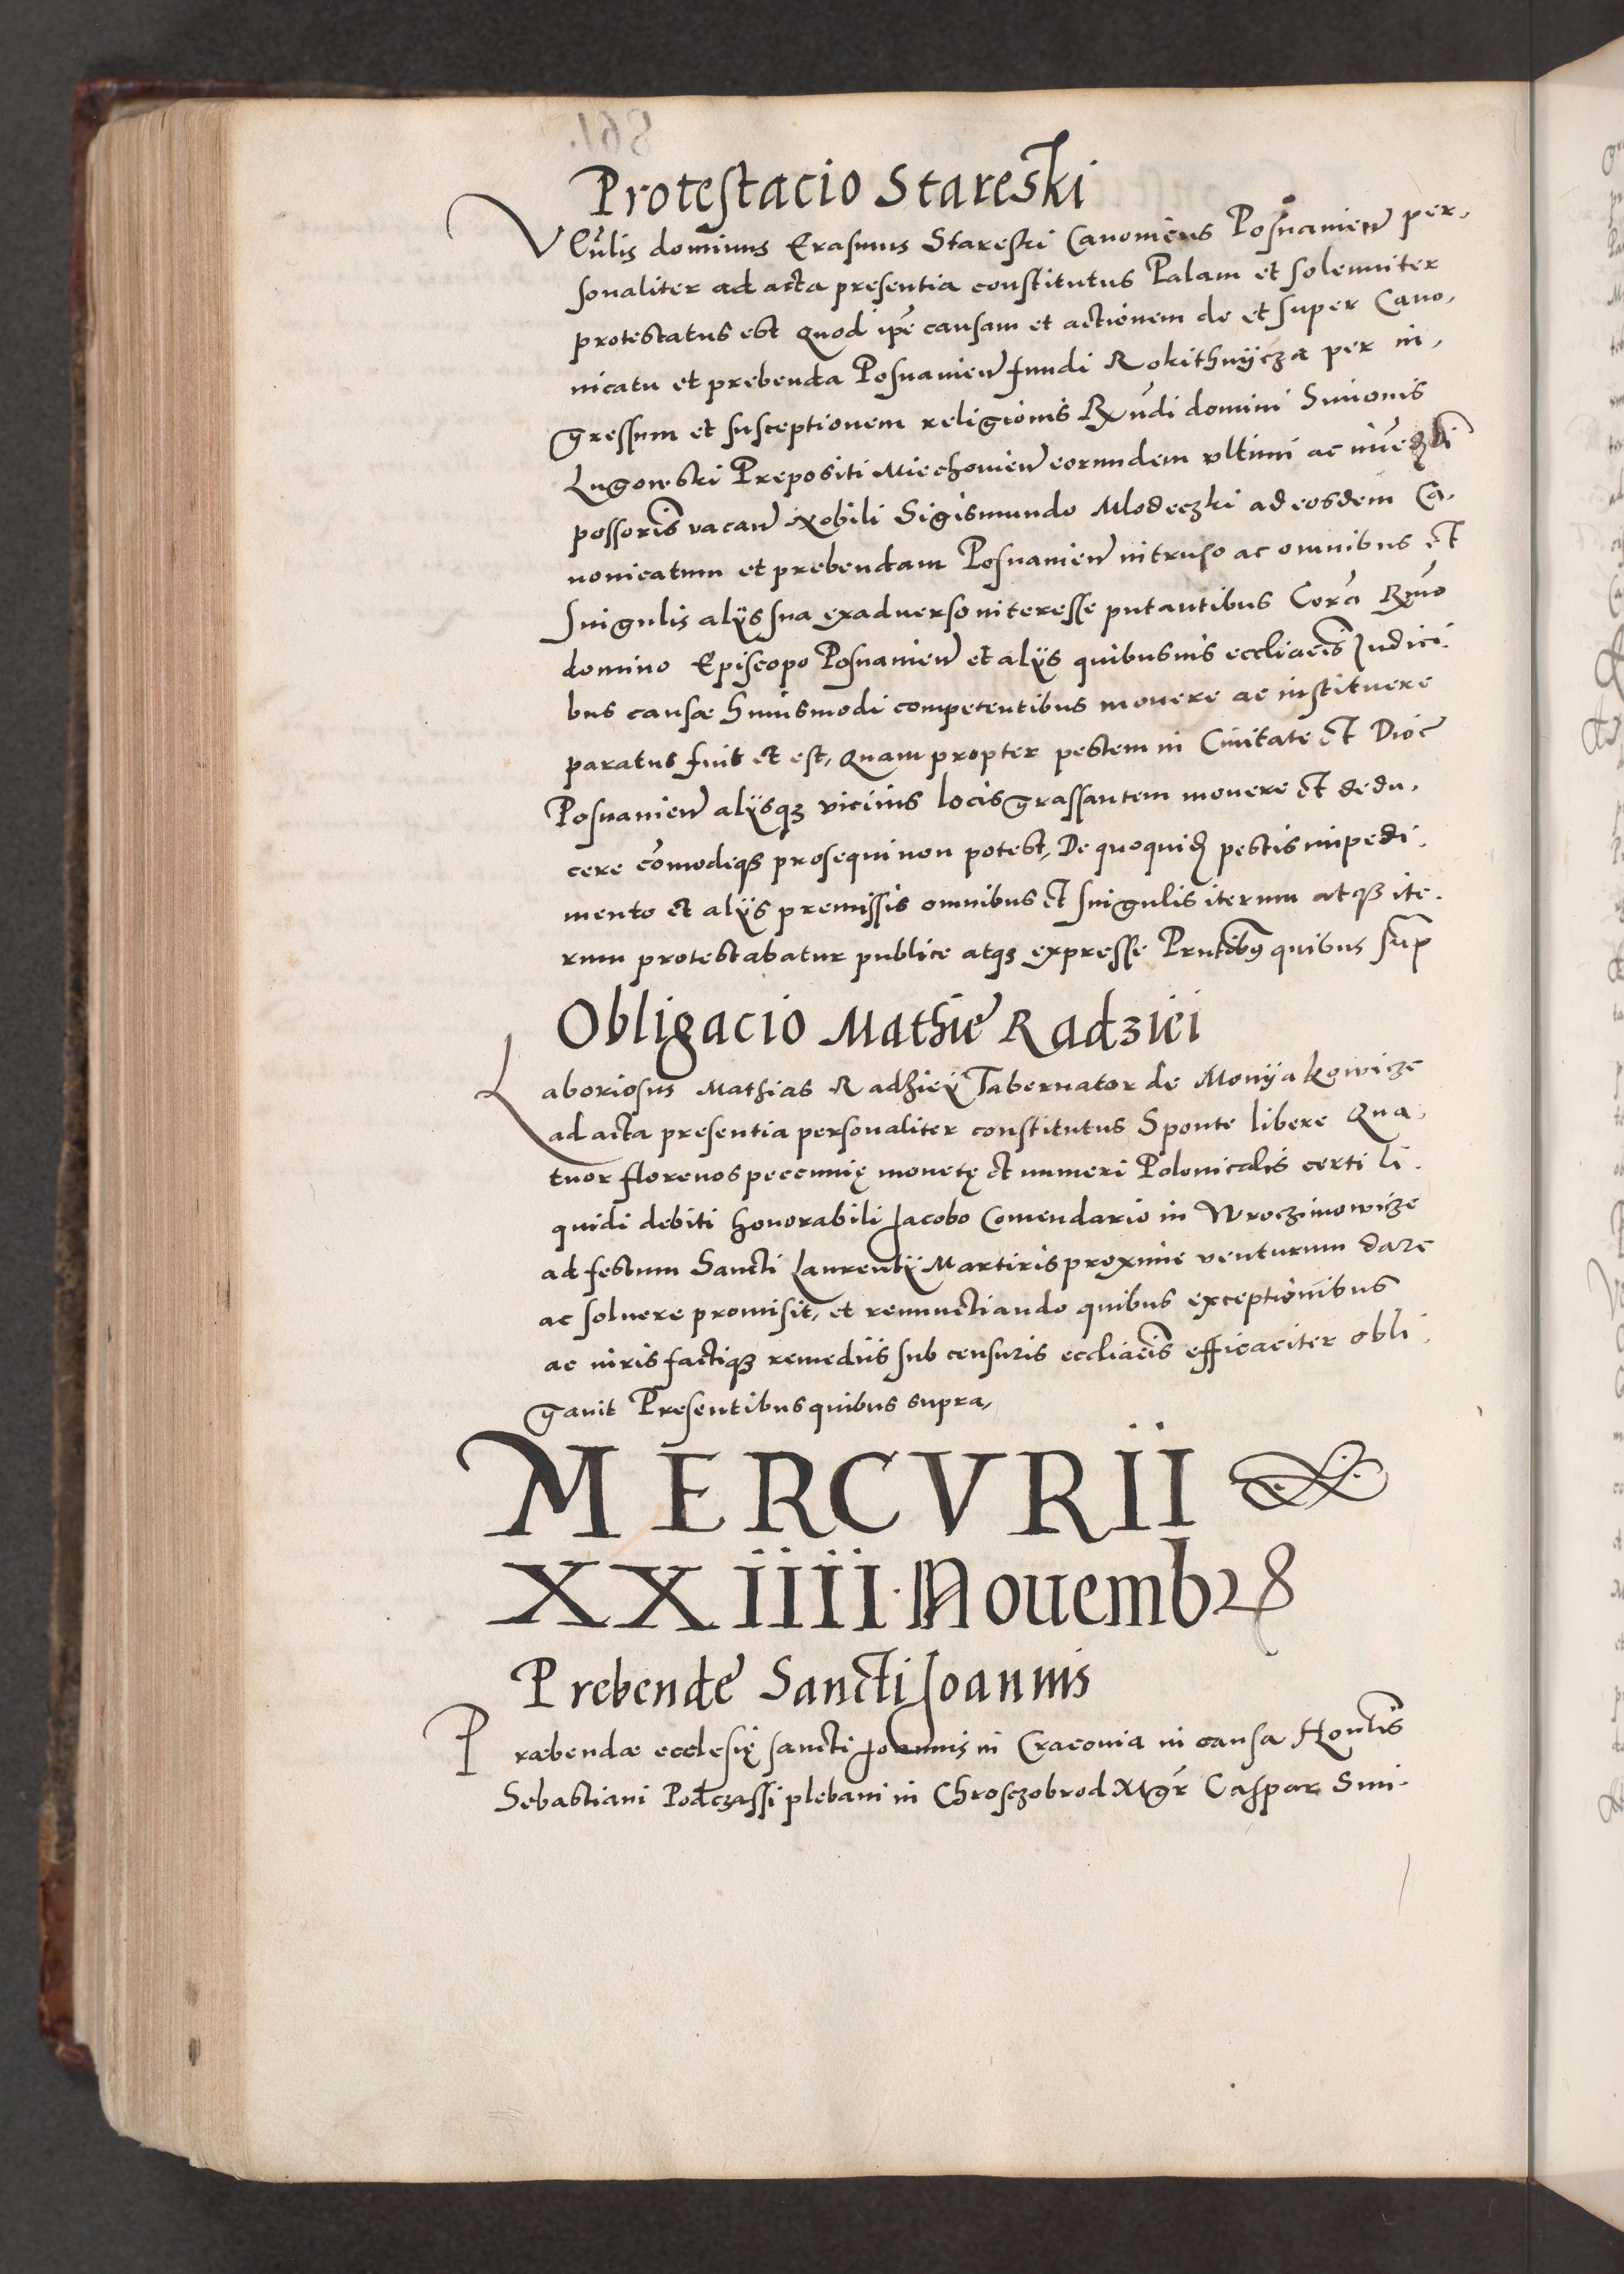 Protestacio Stareski
Venlis dominus Erasmus Stareski Canonicus Posnanien per,
sonaliter ad acta presentia constitutus Palam et solenniter
protestatus est quod ipe causam et actionem de et super Cano,
nicatu et prebenda Posnanien fundi Rokithnÿcza per in,
gressum et susceptionem religionis Rundi domini Simonis
Lugowski Prepositi Miechouien eorundem vltimi ac
possoris vacan Nobili Sigismundo Mlodeczki ad eosdem Ca,
nonicatum et prebendam Posnanien intruso ac omnibus et
singulis alÿs sua exaduerso interesse putantibus Cora Rmo
domino Episcopo Posnanien et alÿs quibusuis eccliacis Judici,
bus causæ huiusmodi competentibus mouere ac instituere
paratus fuit et est, quam propter pestem in Ciuitate et Dioc
Posnanien alÿsq₃ vicinis locis grassantem mouere et dedu,
cere comodeq₃ prosequi non potest, De quoquid pestis impedi,
mento et alÿs premissis omnibus et singulis iterum atq₃ ite,
rum protestabatur publice atq₃ expresse Prntibus quibus sup
Obligacio Mathie Radziei
Laboriosus Mathias Radzieÿ Tabernator de Monÿakowicze
ad acta presentia personaliter constitutus Sponte libere Qua,
tuor florenos peccunię monetę et numeri Polonicalis certi li,
quidi debiti honorabili Jacobo Comendario in Wroczimowicze
ad festum Sancti Laurentÿ Martiris proxime venturum dare
ac soluere promisit, et renunctiando quibus exceptionibus
ac iuris factiq₃ remediis sub censuris eccliacis efficaciter obli,
gauit Presentibus quibus supra,
MERCVRII
XXIIII. Nouembr
Prebende Sancti Joannis
Præbendæ ecclesię sancti Joannis in Cracouia in causa Honlis
Sebastiani Podczassi plebani in Chrosczobrod Mgr Caspar Sim-